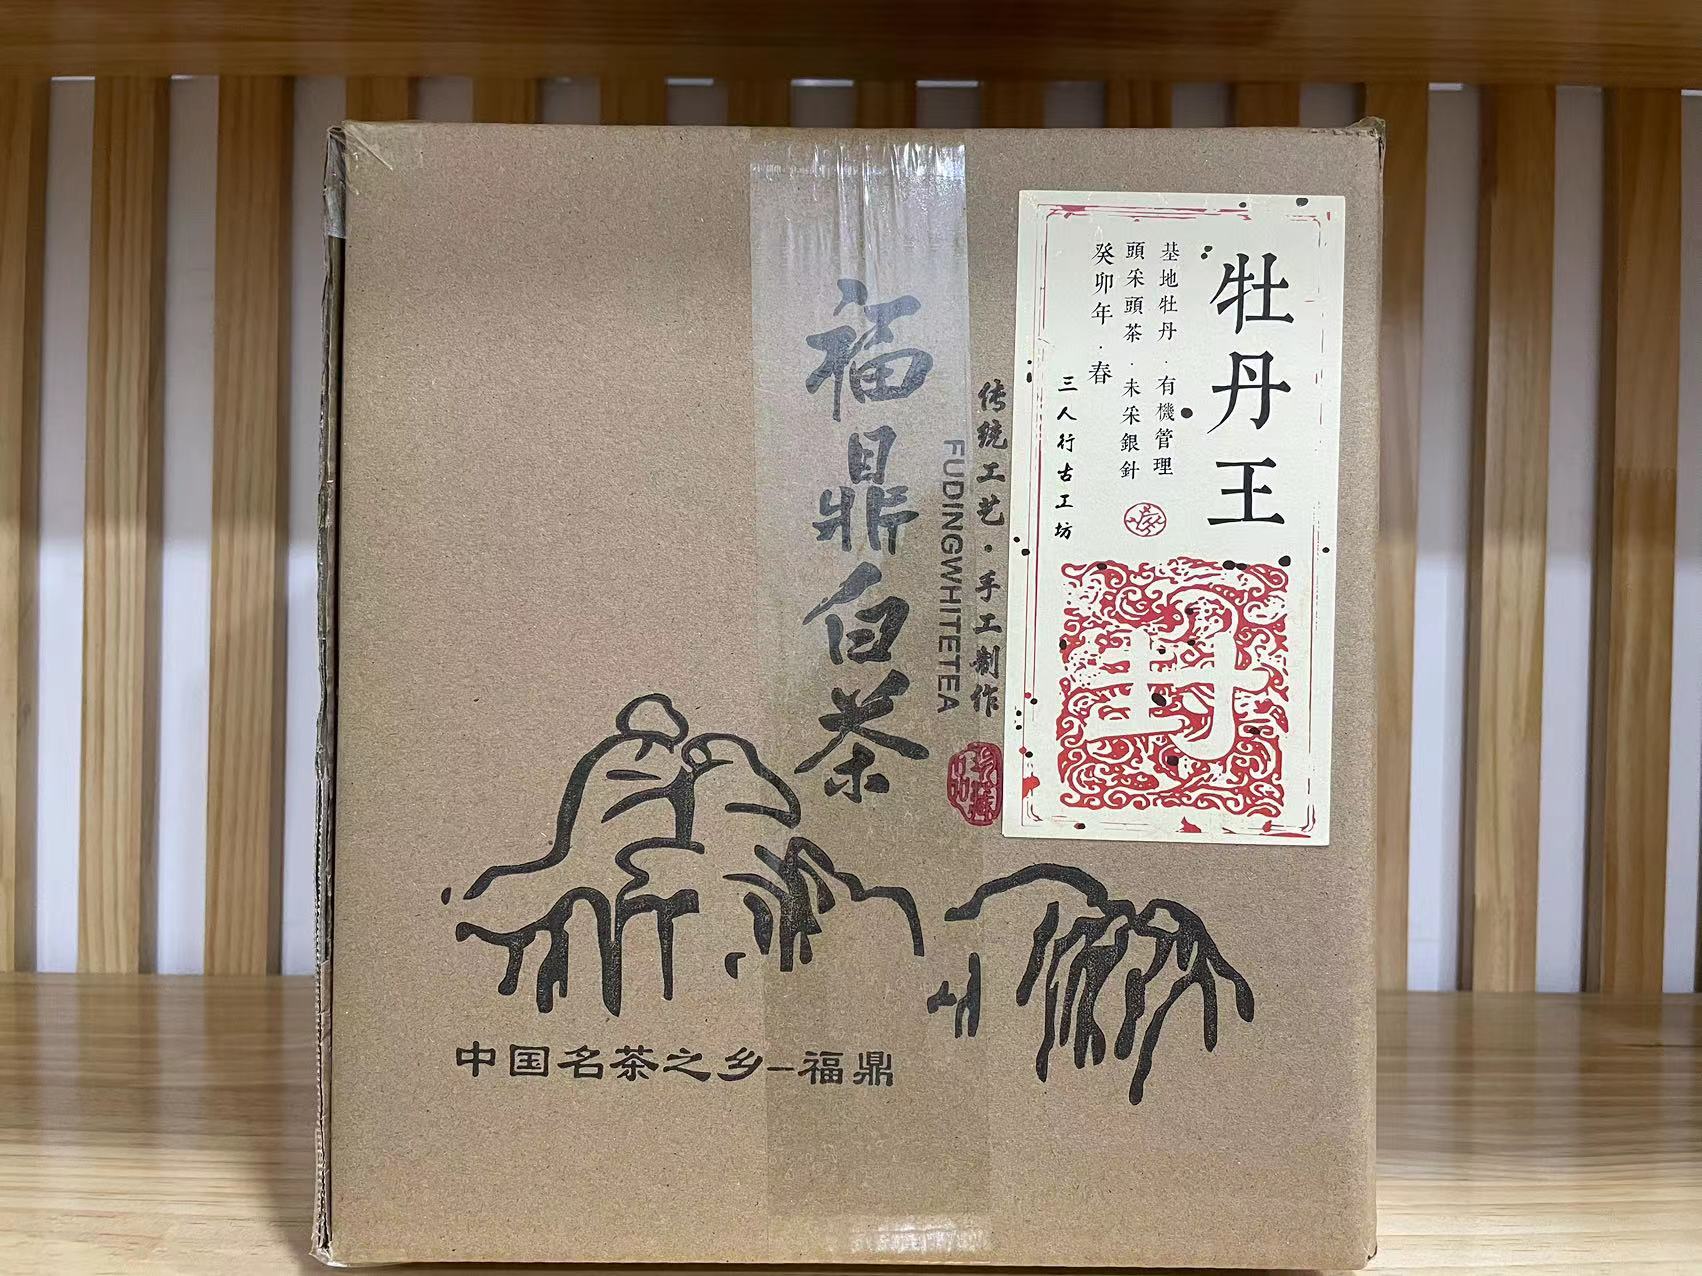 牡丹王
基地牡丹·有機管理
頭采頭茶·未采銀針
癸卯年·春
三人行古工坊
传统工艺·手工制作
FUDINGWHITETEA
福鼎白茶
中国名茶之乡–福鼎